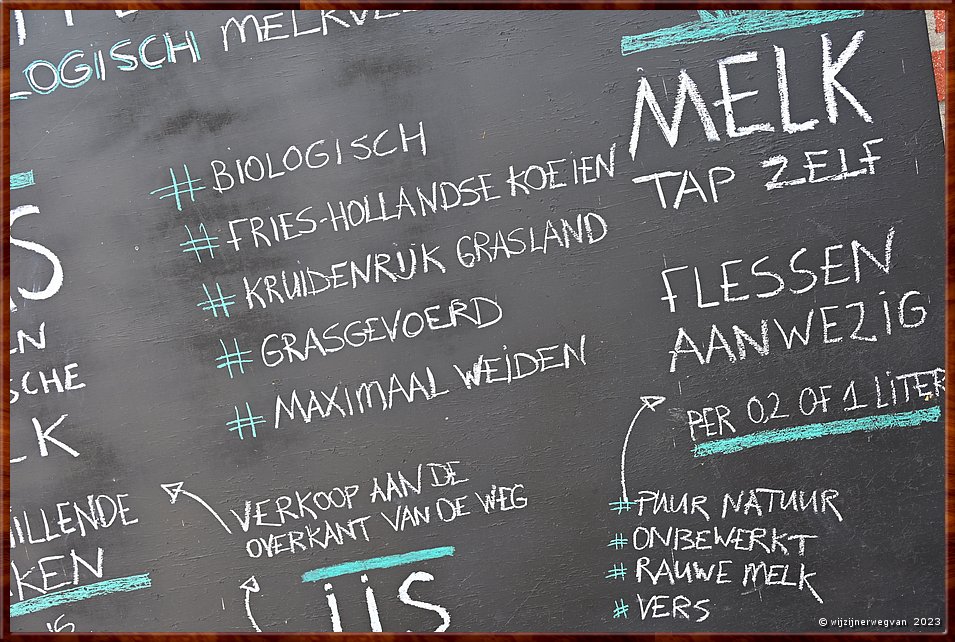 OGISCH MELKVE
# BIOLOGISCH
# FRIES-HOLLANDSE KOEIEN
# KRUIDENRIJK GRASLAND
# GRASGEVOERD
# MAXIMAAL WEIDEN
VERKOOP AAN DE
OVERKANT VAN DE WEG
IJS
S
EN
SCHE
LK
ILLENDE
KEN
IS
MELK
TAP ZELF
FLESSEN
AANWEZIG
PER 0,2 OF 1 LITER
# PUUR NATUUR
# ONBEWERKT
# RAUWE MELK
# VERS
© wijzijnerwegvan 2023